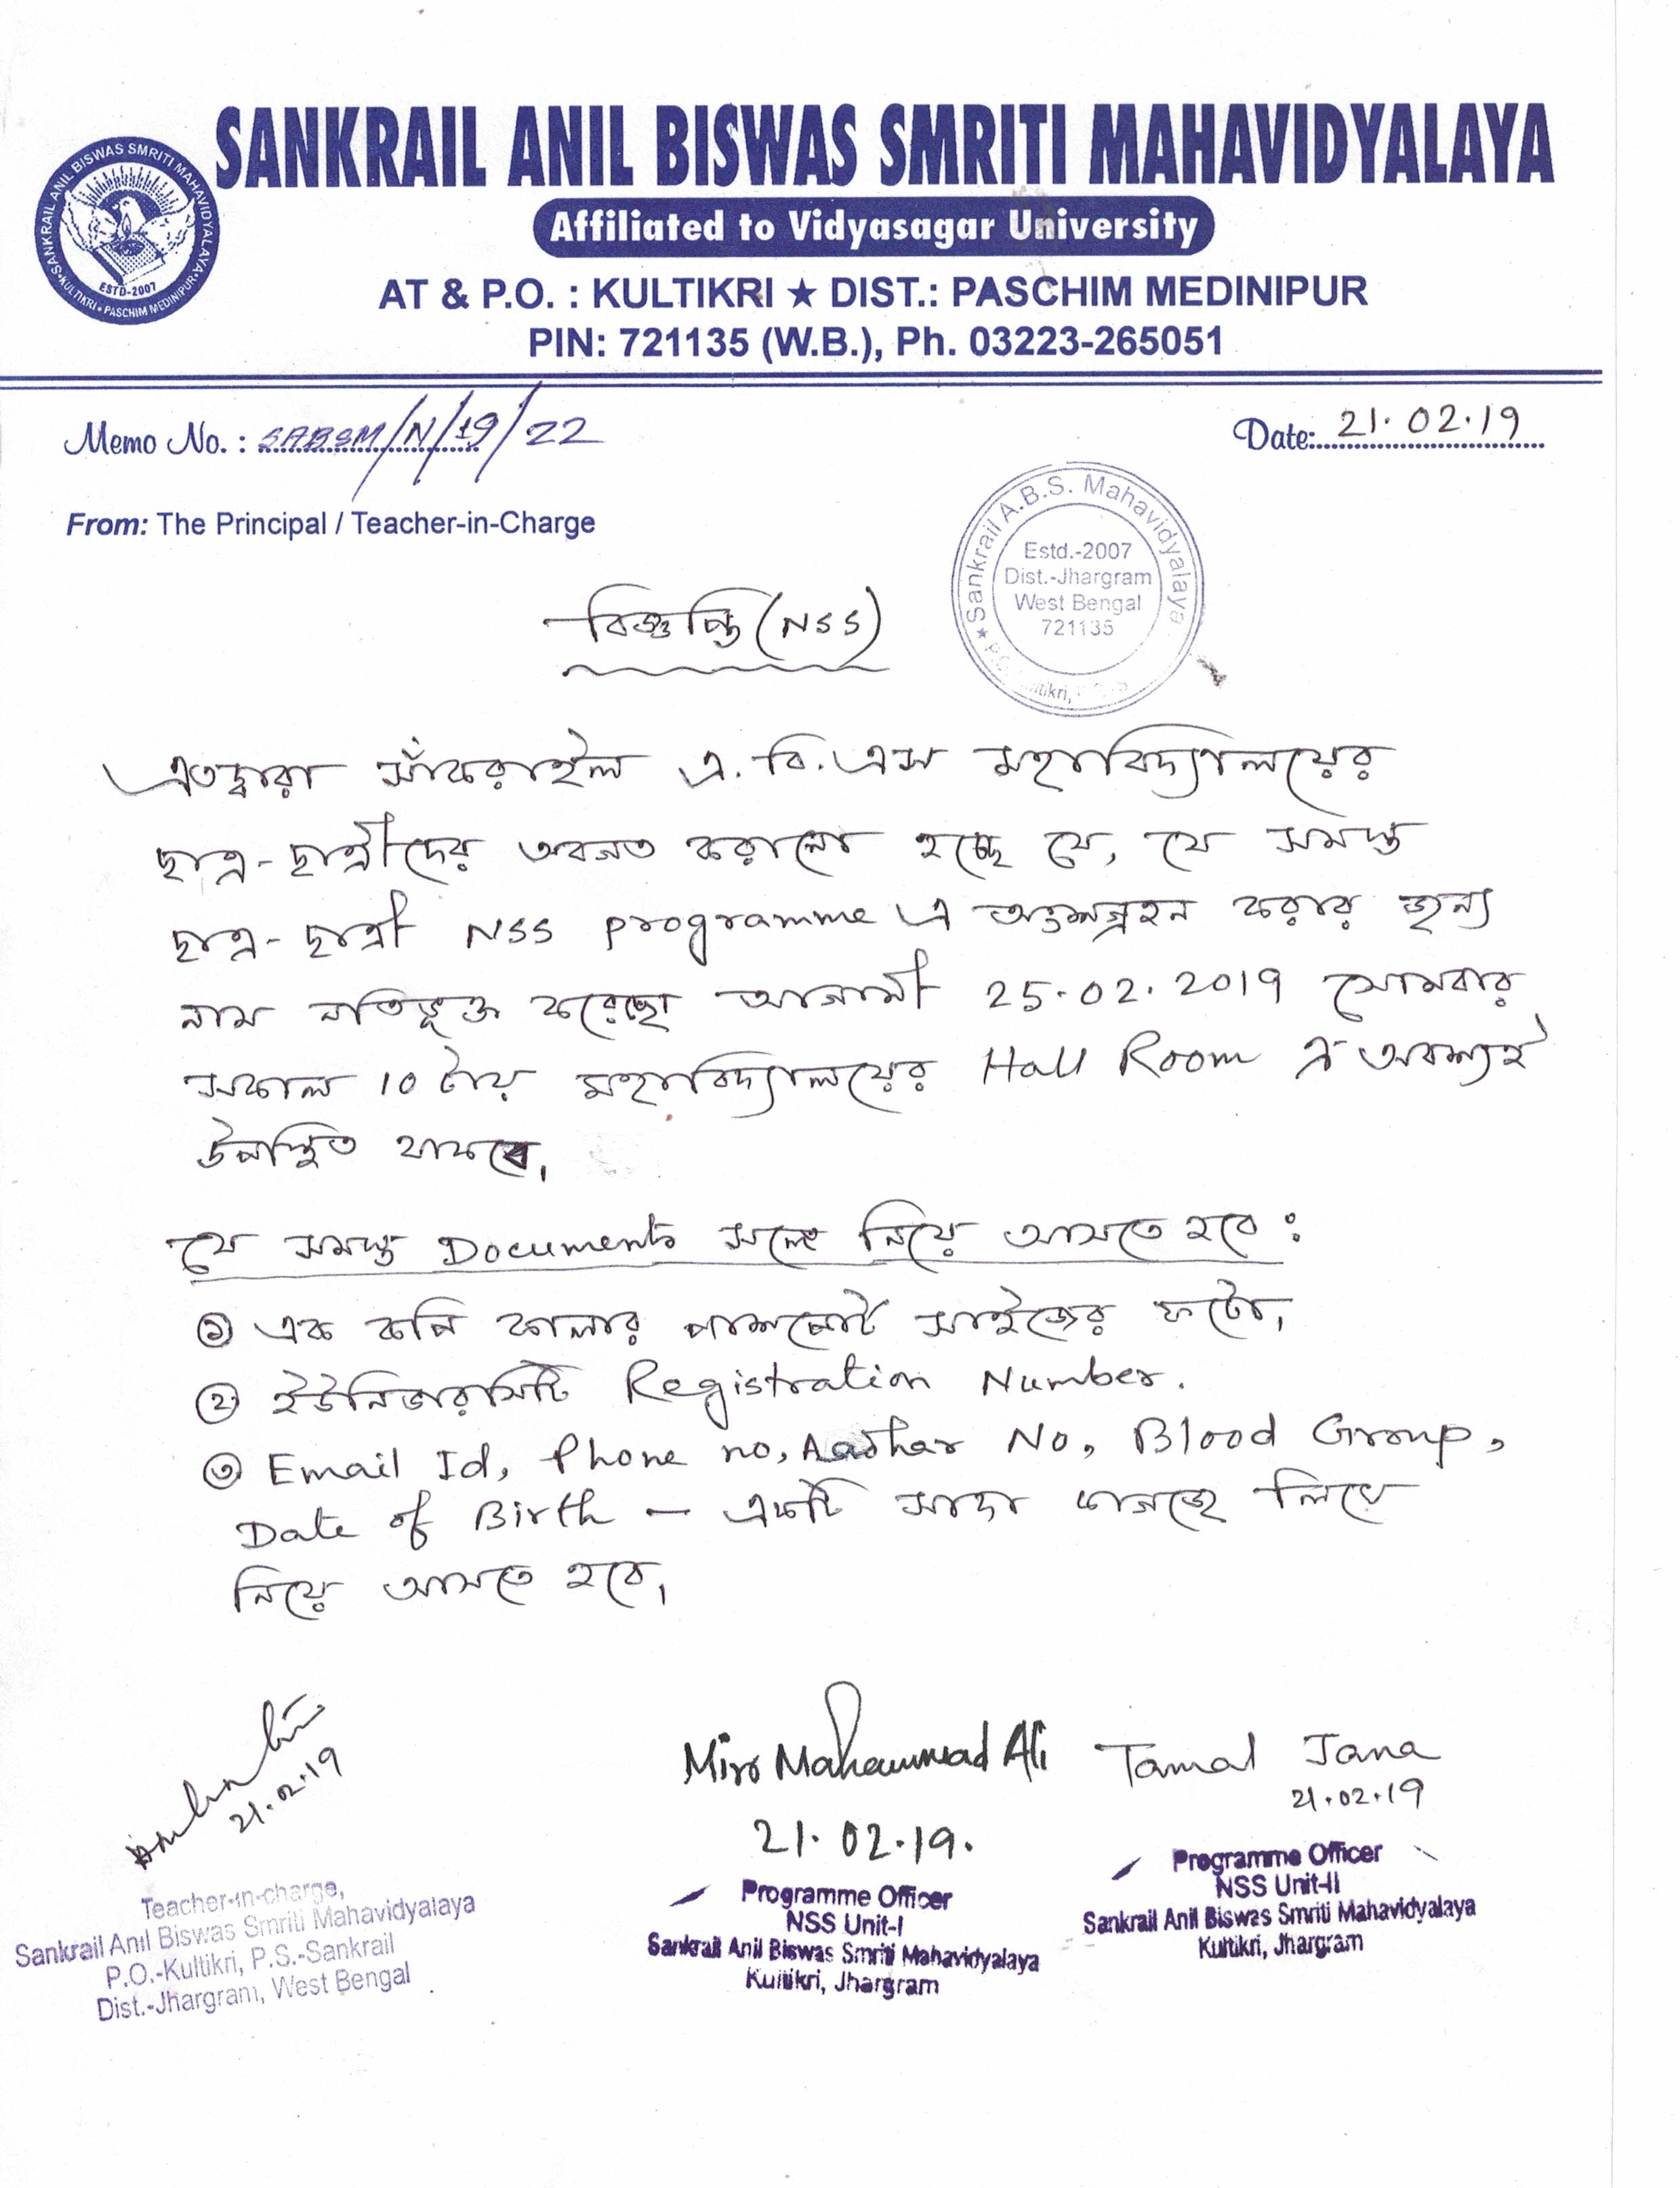 SANKRAIL ANIL BISWAS SMRITI MAHAVIDYALAYA
Affiliated to Vidyasagar University
AT & P.O. : KULTIKRI ★ DIST.: PASCHIM MEDINIPUR
PIN: 721135 (W.B.), Ph. 03223-265051
SANKRAIL ANIL BISWAS SMRITI MAHAVIDYALAYA
ESTD-2007
KULTIKRI • PASCHIM MEDINIPUR
Memo No. : SABSM/N/19/22
Date: 21.02.19
From: The Principal / Teacher-in-Charge
Sankrail A.B.S. Mahavidyalaya
Estd.-2007
Dist.-Jhargram
West Bengal
721135
বিজ্ঞপ্তি (NSS)
এতদ্বারা সাঁকরাইল এ. বি. এস মহাবিদ্যালয়ের
ছাত্র-ছাত্রীদের অবগত করানো হচ্ছে যে, যে সমস্ত
ছাত্র-ছাত্রী NSS programme এ অংশগ্রহন করার জন্য
নাম নতিভূক্ত করেছো আগামী 25.02.2019 সোমবার
সকাল 10 টায় মহাবিদ্যালয়ের Hall Room এ অবশ্যই
উপস্থিত থাকবে।
যে সমস্ত Documents সঙ্গে নিয়ে আসতে হবে :
① এক কপি কালার পাশপোর্ট সাইজের ফটো।
② ইউনিভারসিটি Registration Number.
③ Email Id, Phone no, Aadhar No, Blood Group,
Date of Birth – একটি সাদা কাগজে লিখে
নিয়ে আসতে হবে।
21.02.19
Teacher-in-charge,
Sankrail Anil Biswas Smriti Mahavidyalaya
P.O.-Kultikri, P.S.-Sankrail
Dist.-Jhargram, West Bengal
Miro Mahammad Ali
21.02.19.
Programme Officer
NSS Unit-I
Sankrail Anil Biswas Smriti Mahavidyalaya
Kultikri, Jhargram
Tamal Jana
21.02.19
Programme Officer
NSS Unit-II
Sankrail Anil Biswas Smriti Mahavidyalaya
Kultikri, Jhargram